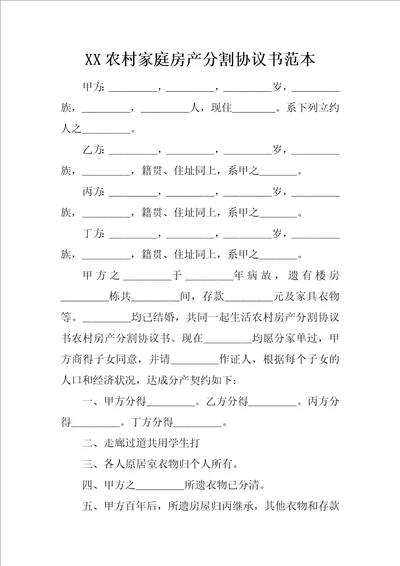 XX农村家庭房产分割协议书范本
甲方:_________，_________，_________岁，________
族，_________，_________人，现住________。系下列立约
人之________。
乙方:_________，_________，_________岁，________
族，_________，籍贯、住址同上，系甲之_______。
丙方:_________，_________，_________岁，________
族，_________，籍贯、住址同上，系甲之_______。
丁方:_________，_________，_________岁，________
族，_________，籍贯、住址同上，系甲之_______。
甲方之_________于_________年病故，遗有楼房
_________栋共_________间，存款_________元及家具衣物
等。_________均已结婚，共同一起生活农村房产分割协议
书农村房产分割协议书。现在_________均愿分家单过，甲
方商得子女同意，并请_________作证人，根据每个子女的
人口和经济状况，达成分产契约如下:
一、甲方分得_________。乙方分得_________。丙方分
得_________。丁方分得_________。
二、走廊过道共用学生打
三、各人原居室衣物归个人所有。
四、甲方之_________所遗衣物已分清。
五、甲方百年后，所遗房屋归丙继承，其他衣物和存款